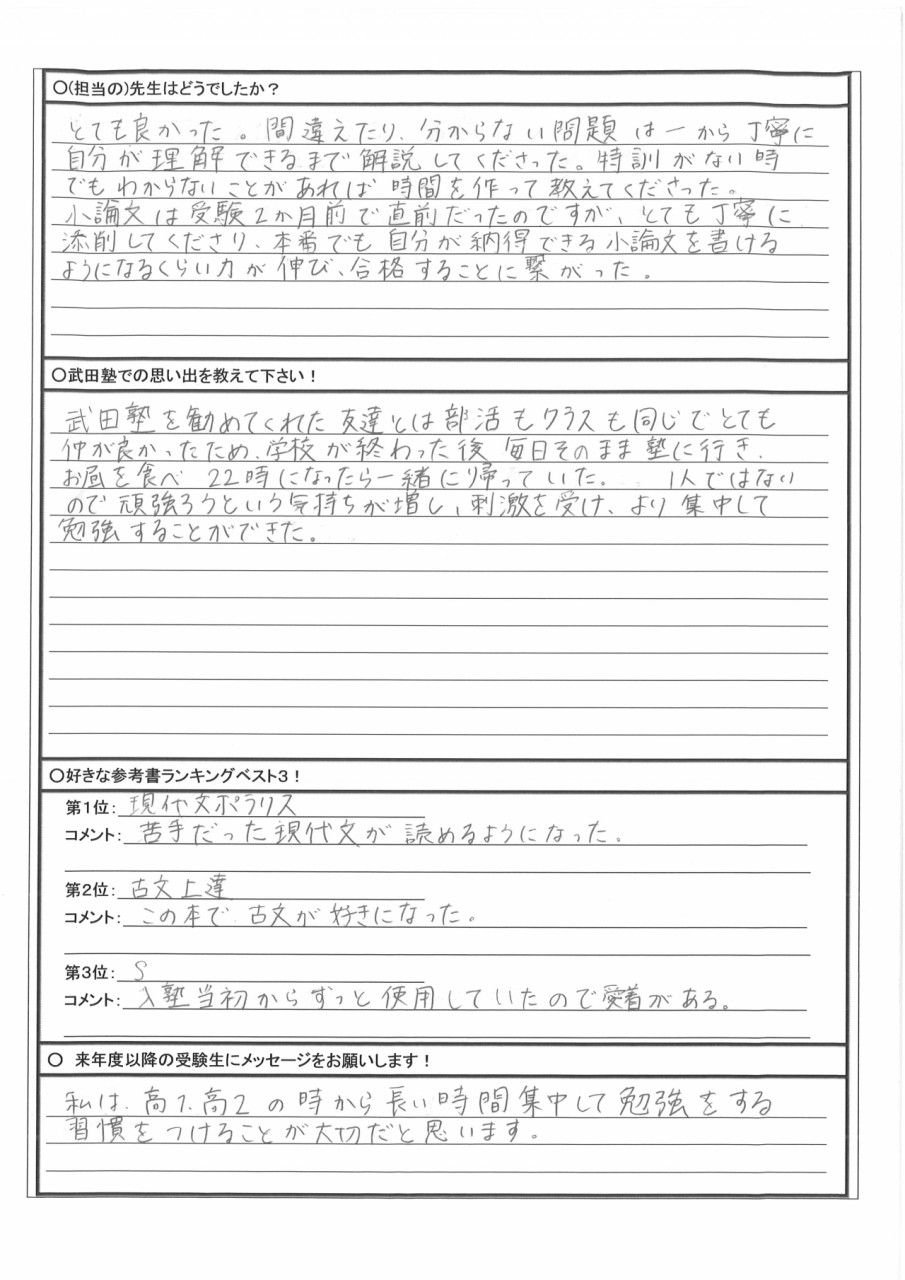 ○(担当の)先生はどうでしたか？
とても良かった。間違えたり、分からない問題は一から丁寧に
自分が理解できるまで解説してくださった。特訓がない時
でもわからないことがあれば時間を作って教えてくださった。
小論文は受験2か月前で直前だったのですが、とても丁寧に
添削してくださり、本番でも自分が納得できる小論文を書ける
ようになるくらい力が伸び、合格することに繋がった。
○武田塾での思い出を教えて下さい！
武田塾を勧めてくれた友達とは部活もクラスも同じでとても
仲が良かったため、学校が終わった後毎日そのまま塾に行き、
お昼を食べ 22時になったら一緒に帰っていた。 1人ではない
ので頑強ろうという気持ちが増し、刺激を受け、より集中して
勉強することができた。
○好きな参考書ランキングベスト３！
第１位：現代文ポラリス
コメント：苦手だった現代文が読めるようになった。
第２位：古文上達
コメント：この本で古文が好きになった。
第３位：S
コメント：入塾当初からずっと使用していたので愛着がある。
○ 来年度以降の受験生にメッセージをお願いします！
私は、高1、高2の時から長い時間集中して勉強をする
習慣をつけることが大切だと思います。